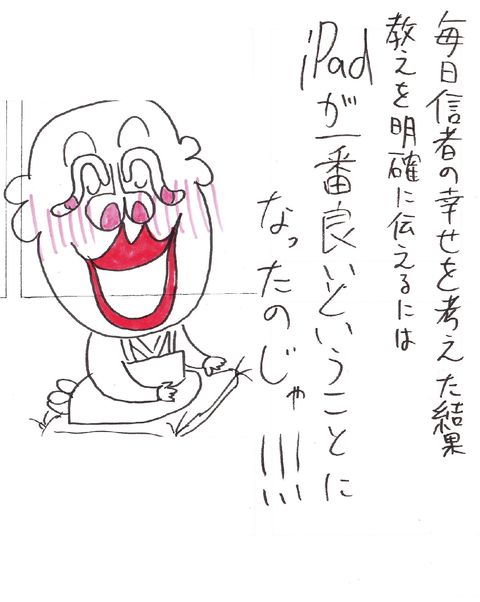 毎日信者の幸せを考えた結果
教えを明確に伝えるには
iPadが一番良いということに
なったのじゃ!!!